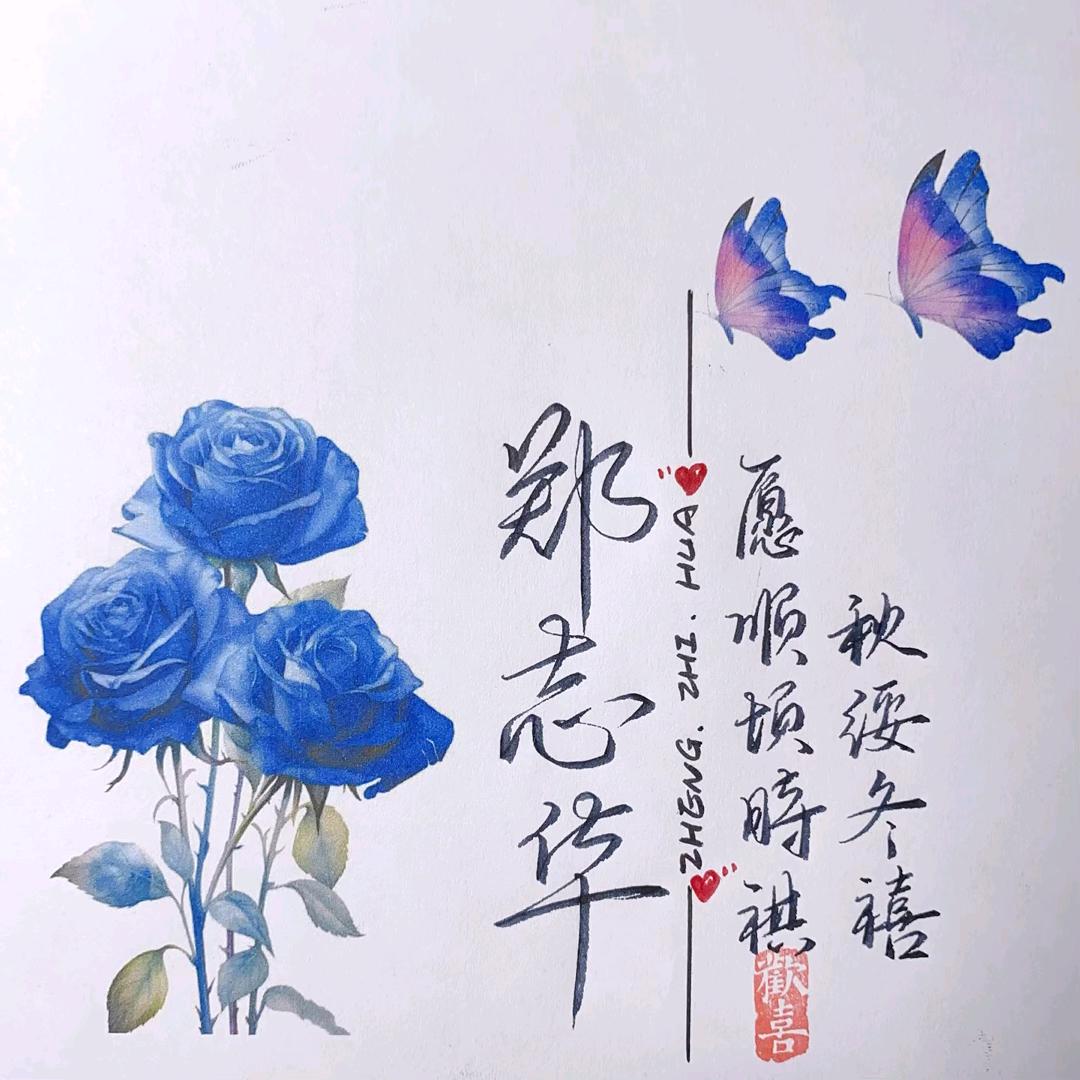 郑志华
ZHENG. ZHI. HUA
愿順頌時祺
秋綏冬禧
歡喜